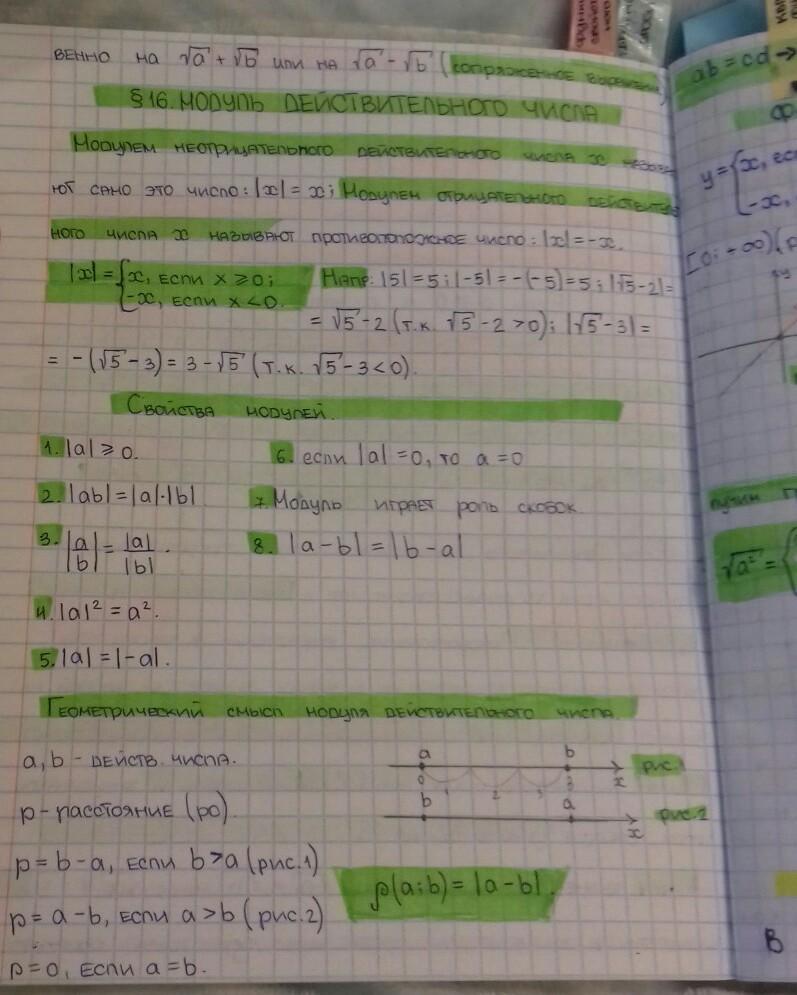 венно на √a + √b или на √a - √b (сопряженное выражени
§ 16. Модуль действительного числа
Модулем неотрицательного действительного числа x назыв
ют само это число: |x| = x; Модулем отрицательного действитель
ного числа x называют противоположное число: |x| = -x.
|x| = {x, если x ≥ 0; Напр: |5| = 5; |-5| = -(-5) = 5; |√5 - 2| =
-x, если x < 0.
= √5 - 2 (т.к. √5 - 2 > 0); |√5 - 3| =
= -(√5 - 3) = 3 - √5 (т.к. √5 - 3 < 0).
Свойства модулей.
1. |a| ≥ 0.
2. |ab| = |a|·|b|
3. |a/b| = |a|/|b|.
4. |a|² = a².
5. |a| = |-a|.
6. если |a| = 0, то a = 0
7. Модуль играет роль скобок
8. |a - b| = |b - a|
Геометрический смысл модуля действительного числа.
a, b - действ. числа.
p - расстояние (ро).
p = b - a, если b > a (рис. 1)
p = a - b, если a > b (рис. 2)
p = 0, если a = b.
a b
0 1 2 3 3 x рис. 1
b a
x рис. 2
ρ(a; b) = |a - b|.
ab = cd →
y = {x, есл
-x,
[0; +∞) (
y
√a² = {
В